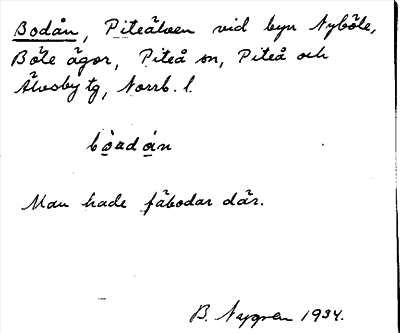 Bodån, Piteälven vid byn Nyböle,
Böle ägor, Piteå sn, Piteå och
Älvsby tg, Norrb. l.
Man hade fäbodar där.
B. Nygren 1934.